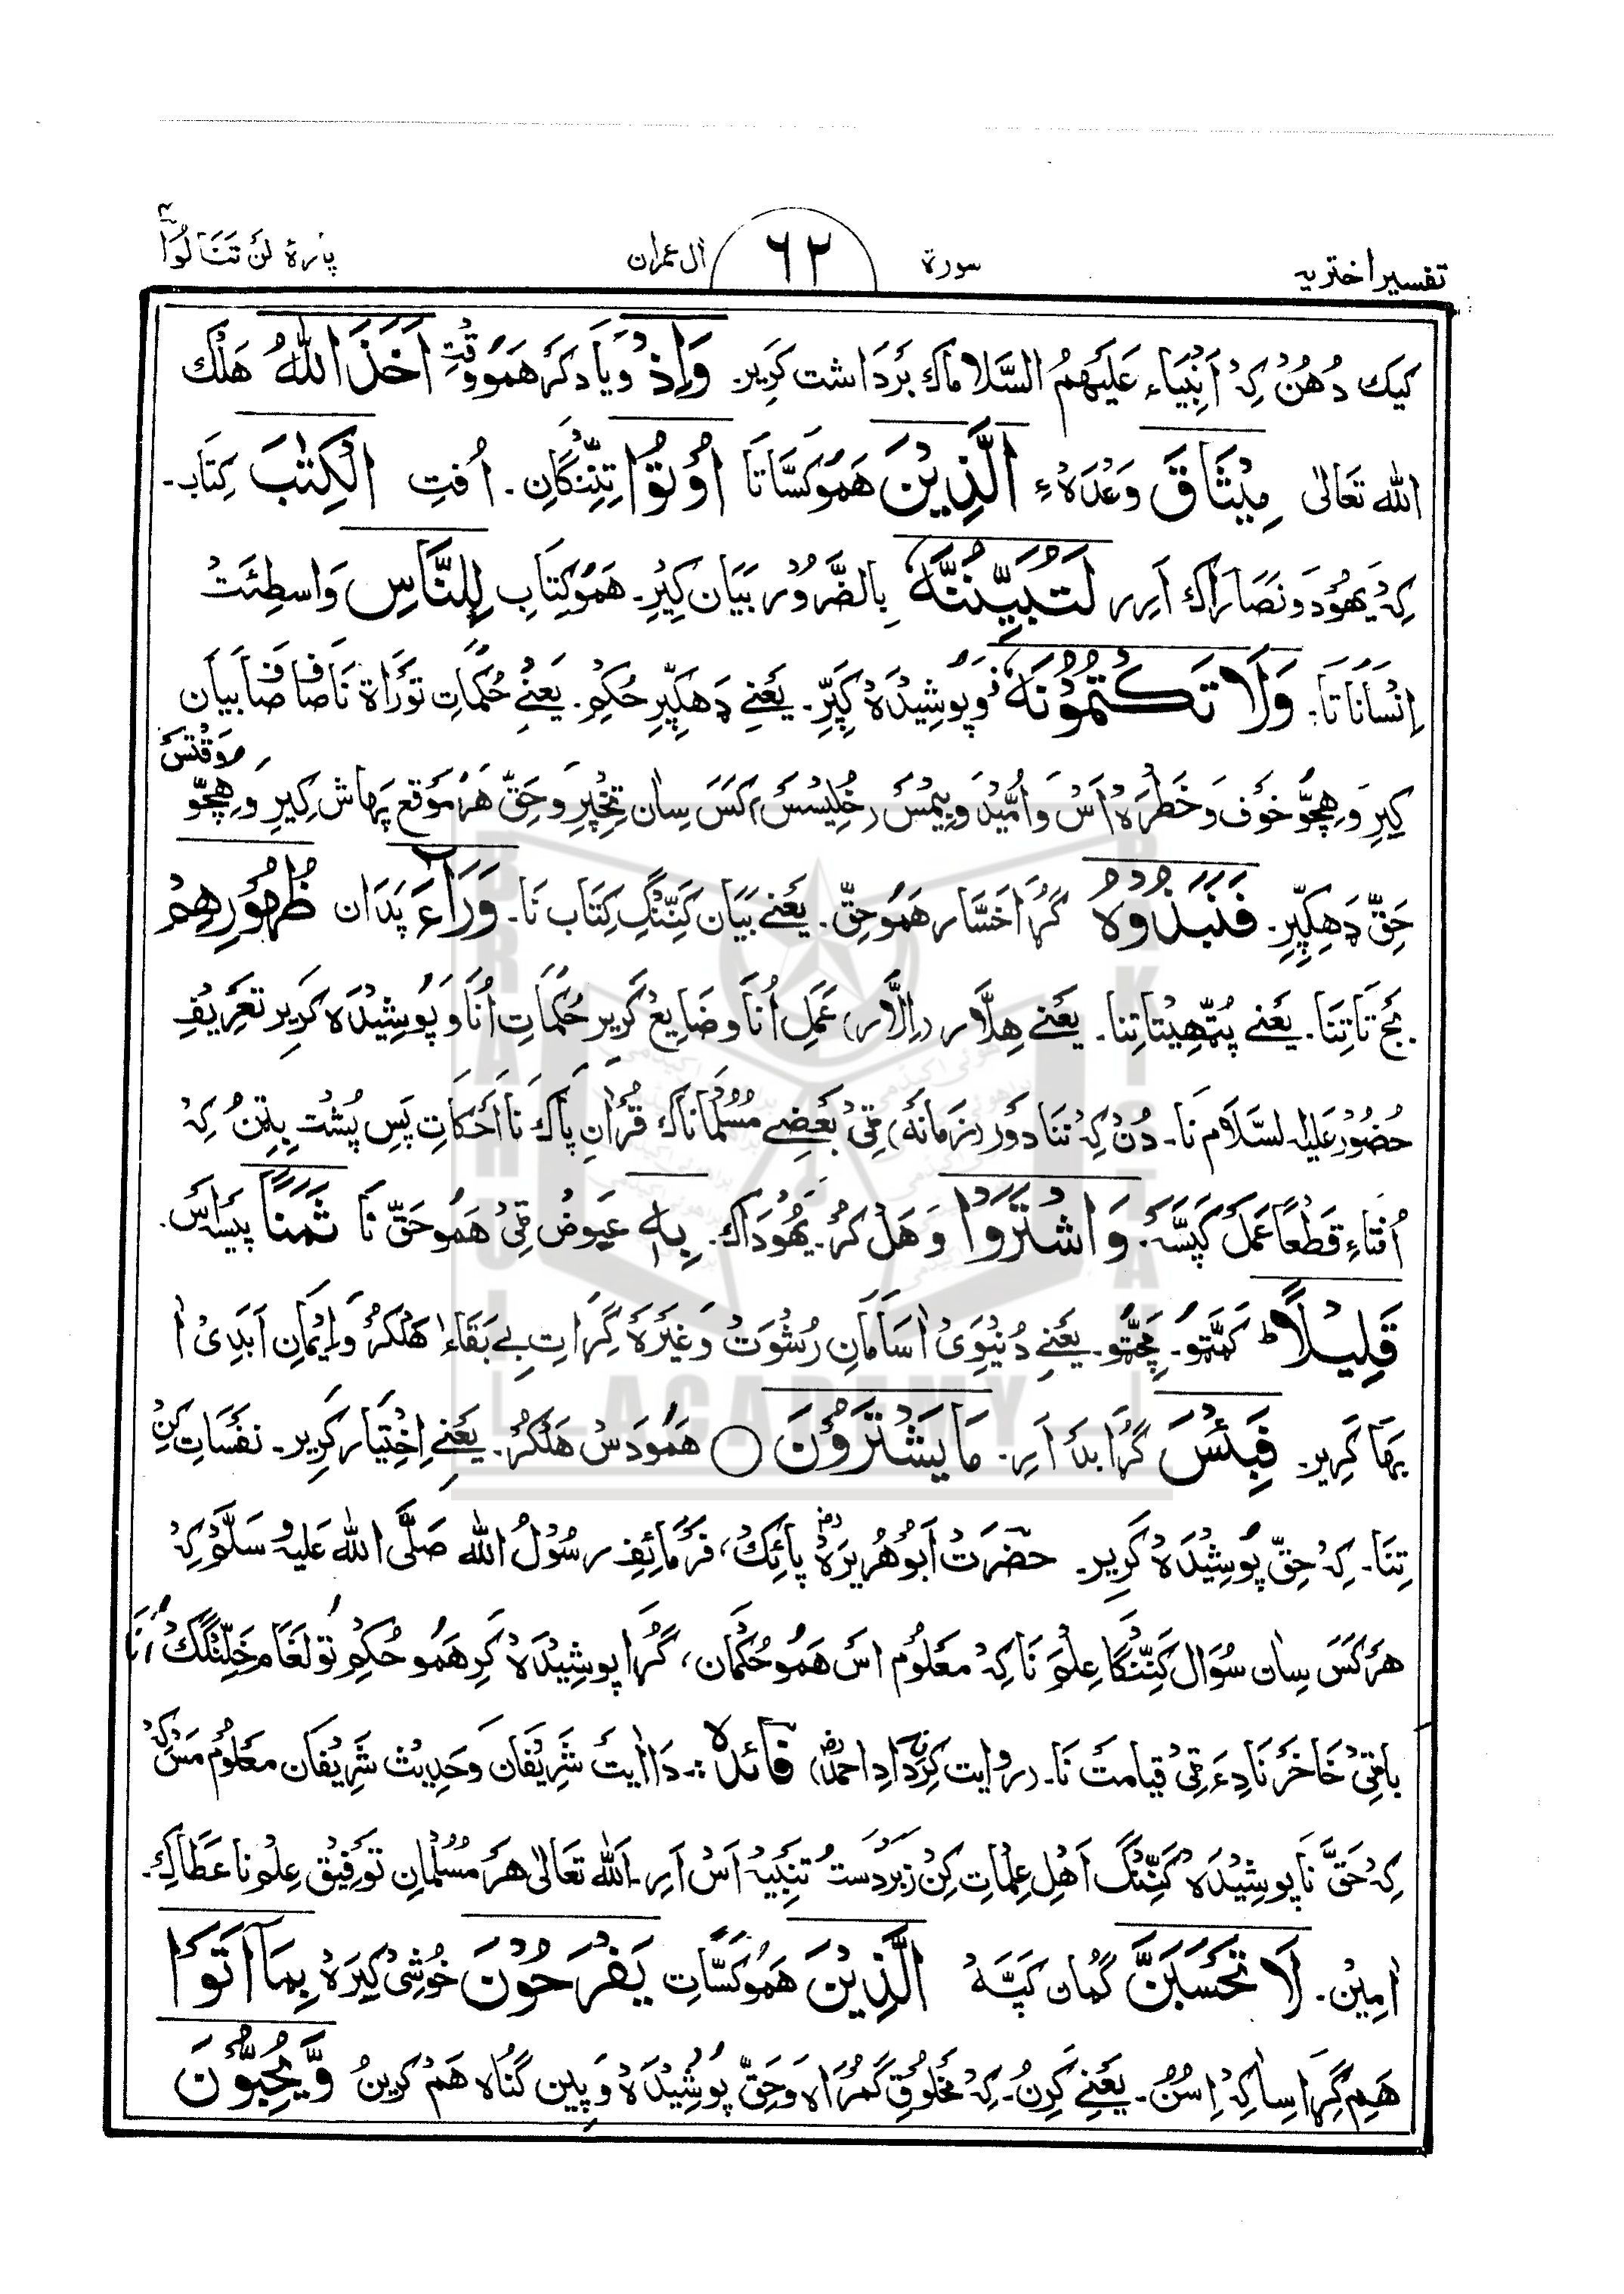 تفسیر اختریه سورة ٦٢ اٰل عمران پارۀ لن تَنَالُوا ٤
کیک دُهُنْ کِہ اَنْبِیَاء عَلَیْهِمُ السَّلَامَاک بَرْدَاشت کَرِیر۔ وَاِذْ وَیَاد کَر هَمُو وَقْتِ اَخَذَ اللّٰهُ هَلْک
اللّٰه تَعَالٰی مِیْثَاقَ وَعْدَهٔ ءِ الَّذِیْنَ هَمُو کَسَّاتَا اُوْتُوا تِنِّنْگَانِ۔ اُفتِ الْکِتٰبَ کِتَاب۔
کِہ یَهُوْد وَ نَصَارَاک اَرِر لَتُبَیِّنُنَّهٗ بِالضَّرُوْر بَیَان کِیْرِ۔ هَمُو کِتَابِ لِلنَّاسِ وَاسطِئَتْ
اِنْسَانَاتَا۔ وَلَا تَکْتُمُوْنَهٗ وَ پُوشِیْدَہ کِپَّرِ۔ یَعْنِے ڈَهکِپِّرِ حُکمِ۔ یَعْنِے حُکمَاتِ تَوْرَاة نَا صَافْ صَافْ بیَان
کِیرِ وَ هِچُّو خَوْف وَ خَطْرَہ اَسْ وَ اُمِّیْد وَ بِیْمْسْ رخْلِیسْسْ کَسَ سِان تِخْپِرِ وَ حَقِّ هَرْ مَوْقع پَهَاش کِیرِ وَ هِچُّو مَوْقَتَسْ
حَقِّ ڈَهِکِپِّرِ۔ فَنَبَذُوْهُ گُڑَا خَسَّار هَمُو حَقِّ۔ یَعْنِے بَیَان کَنِّنْگِ کِتَاب نَا۔ وَرَآءَ پَدَان ظُهُوْرِهِمْ
بَجْ تَا تِنَا۔ یَعْنِے پُٹِّهِیْتَا تِنَا۔ یَعْنِے هِلَّار (اِلَّار) عَمَلِ اُنَا وَ ضَایِعْ کَرِیر حُکمَاتِ اُنَا وَ پُوشِیْدَہ کَرِیر تَعْرِیْفِ
حُضُوْر عَلَیْہ السَّلَام نَا۔ دُنْ کِہ نَنَا دَوْر (زَمَانَہ) ٹِی بَعْضِے مُسُلْمَانَاک قُرْاٰنِ پَاک نَا اَحْکَاتِ پَسِ پُشْت بِٹِنُ کِہ
اُفْتَاءِ قَطْعًا عَمَل کَپِّسَہ۔ وَاشْتَرَوْا وَ هَلْ کُر۔ یَهُوْدَاک۔ بِهٖ عِیَوض ٹِی هَمُو حَقّ نَا ثَمَنًا پَیْسَہ اَس۔
قَلِیْلًا ط کَمْتُو۔ مَچْتُو۔ یَعْنِے دُنْیَوِیْ اسَامَانِ رُشْوَتْ وَغَیْرَہ گِڑَاتِ بے بَقَاءَا هَلْکُر وَ اِیْمَانِ اَبَدِیْ ا
بَهَا کَرِیر۔ فَبِئْسَ گُڑَا بَدَ اَرِ۔ مَا یَشْتَرُوْنَ ◯ هَمُو دَسْ هَلْکُر۔ یَعْنِے اِخْتِیَار کَرِیر۔ نَفْسَاتِ کِنْ
تِنَا۔ کِہ حَقِّ پُوشِیْدَہ کَرِیر۔ حضرَت اَبُو هُرِیْرَہ رض پَائِک، فَرْمَائِفِ رسُوْلُ اللّٰه صَلَّی اللّٰه عَلَیْہِ وَسَلَّم کِہ
هَرْ کَسْ سِان سُوَال کَنِّنْگا عِلْم نَا کِہ مَعْلُوم اَسْ هَمُو حُکمَان، گُڑَا پوشِیْدَہ کَرِ هَمُو حُکمِ تو لَغَام خَلِّنْگِک اُنَا
بَاٹِی خَاخَر نَا دِءَ ٹِی قِیَامَت نَا۔ (روایت کرّ دَادِ احمد رح) فائدہ :- دَا اٰیَت شَرِیْفَان وَ حَدِیْث شَرِیْفَان مَعْلُوم مَسْ کِہ
کِہ حَقّ نَا پوشِیْدَہ کَنِّنْگ اَهْلِ عِلْمَاتِ کِنْ زَبَرْدَسْت تَنْبِیْہ اَسْ اَرِ۔ اَللّٰه تَعَالٰی هَرْ مُسُلْمَانِ تَوْفِیْق عِلْم نَا عَطَا کِ۔
اٰمِیْن۔ لَا تَحْسَبَنَّ گُمَان کَپَّہ الَّذِیْنَ هَمُو کَسَّاتِ یَفْرَحُوْنَ خُوْشِیْ کِیرَہ بِمَآ اَتَوْا
هَمِ گِڑَا سَا کِہ اِسُنْ۔ یَعْنِے کَرِنُ۔ کِہ مَخْلُوْقِ گُمْرَاہ وَ حَقِّ پُوشِیْدَہ وَ پِین گُنَاہ هَم کَرِینُ وَّ یُحِبُّوْنَ
BRAHUI ACADEMY PAKISTAN